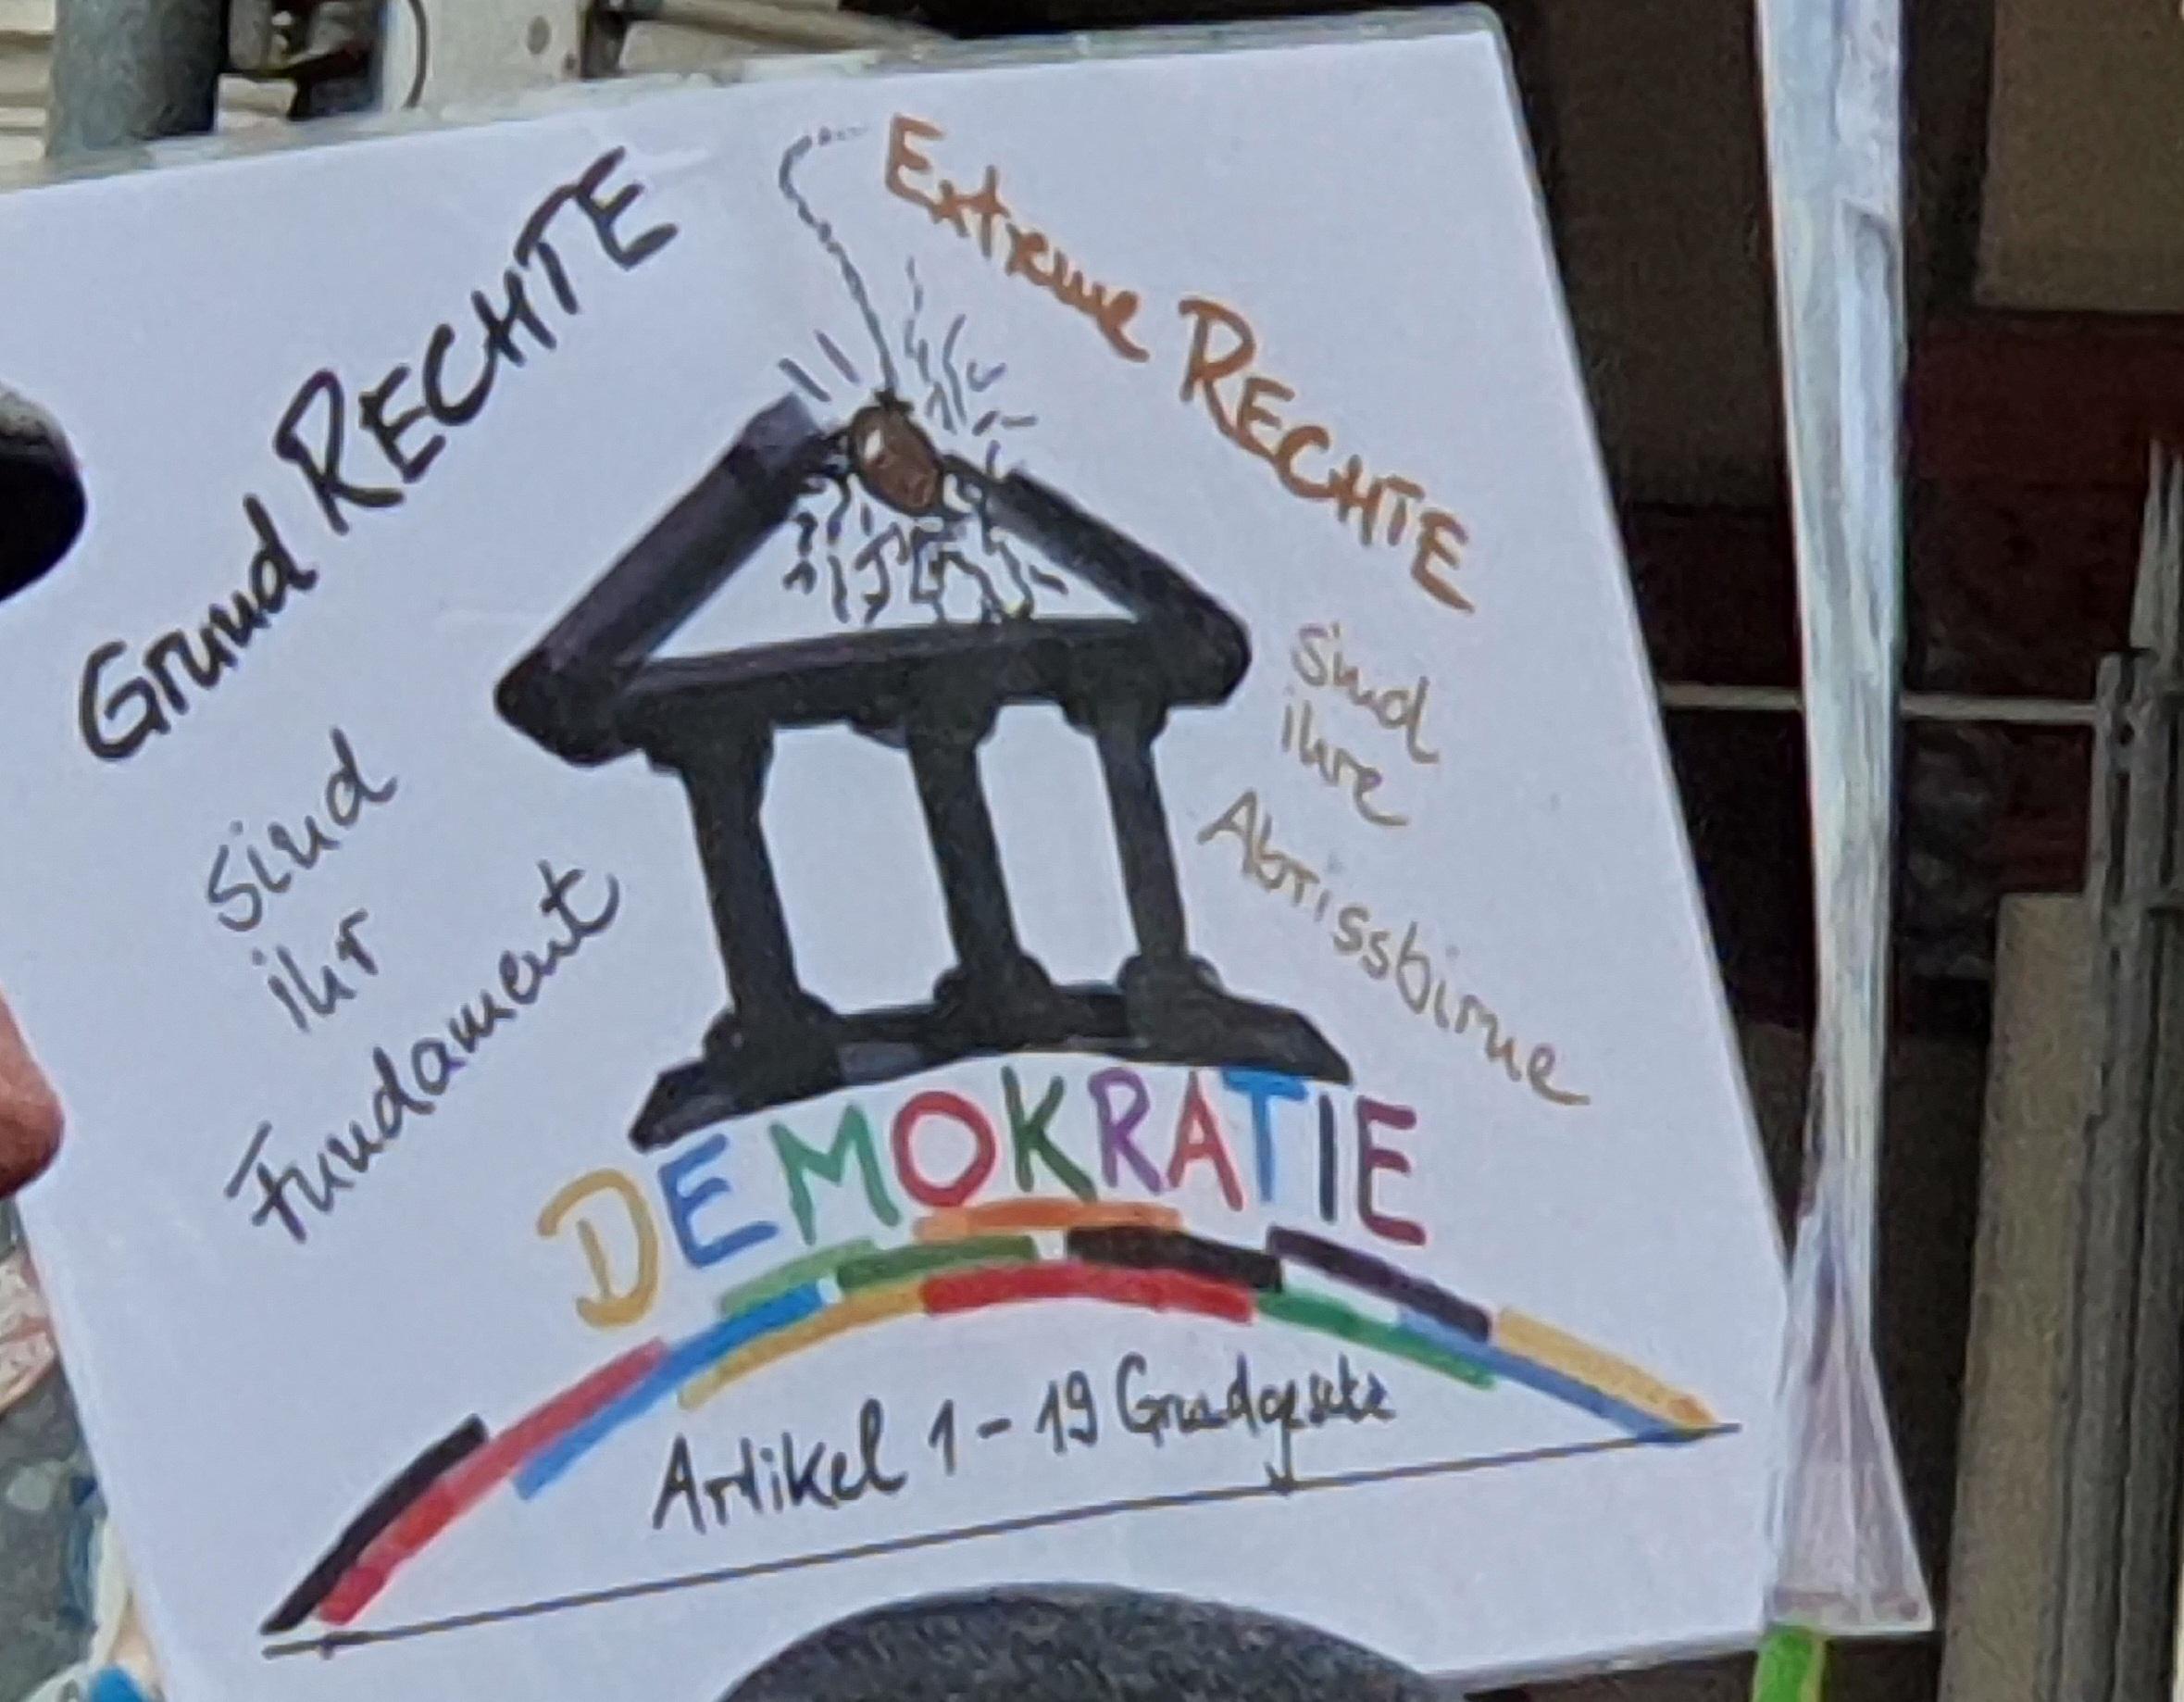 Grund RECHTE
sind
ihr
Fundament
Extreme RECHTE
sind
ihre
Abrissbirne
DEMOKRATIE
Artikel 1 - 19 Grundgesetz